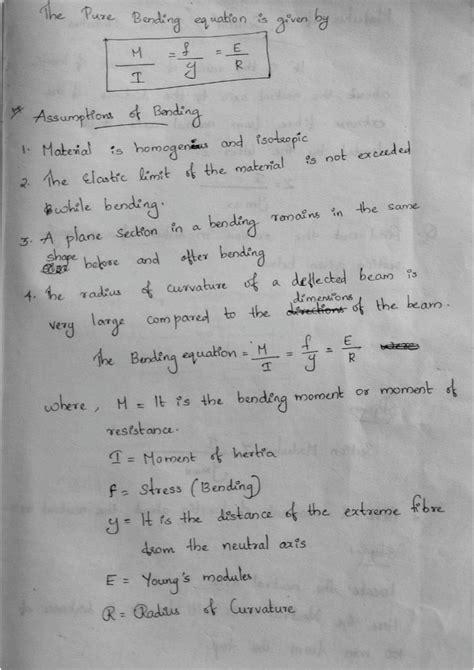 The Pure Bending equation is given by
M/I = f/y = E/R
* Assumptions of Bending
1. Material is homogeneus and isotropic
2. The Elastic limit of the material is not exceeded
while bending.
3. A plane section in a bending remains in the same
shape before and after bending
4. The radius of curvature of a deflected beam is
very large compared to the dimensions of the beam.
The Bending equation = M/I = f/y = E/R
where, M = It is the bending moment or moment of
resistance.
I = Moment of Inertia
F = Stress (Bending)
y = It is the distance of the extreme fibre
from the neutral axis
E = Young's modules
R = Radius of Curvature